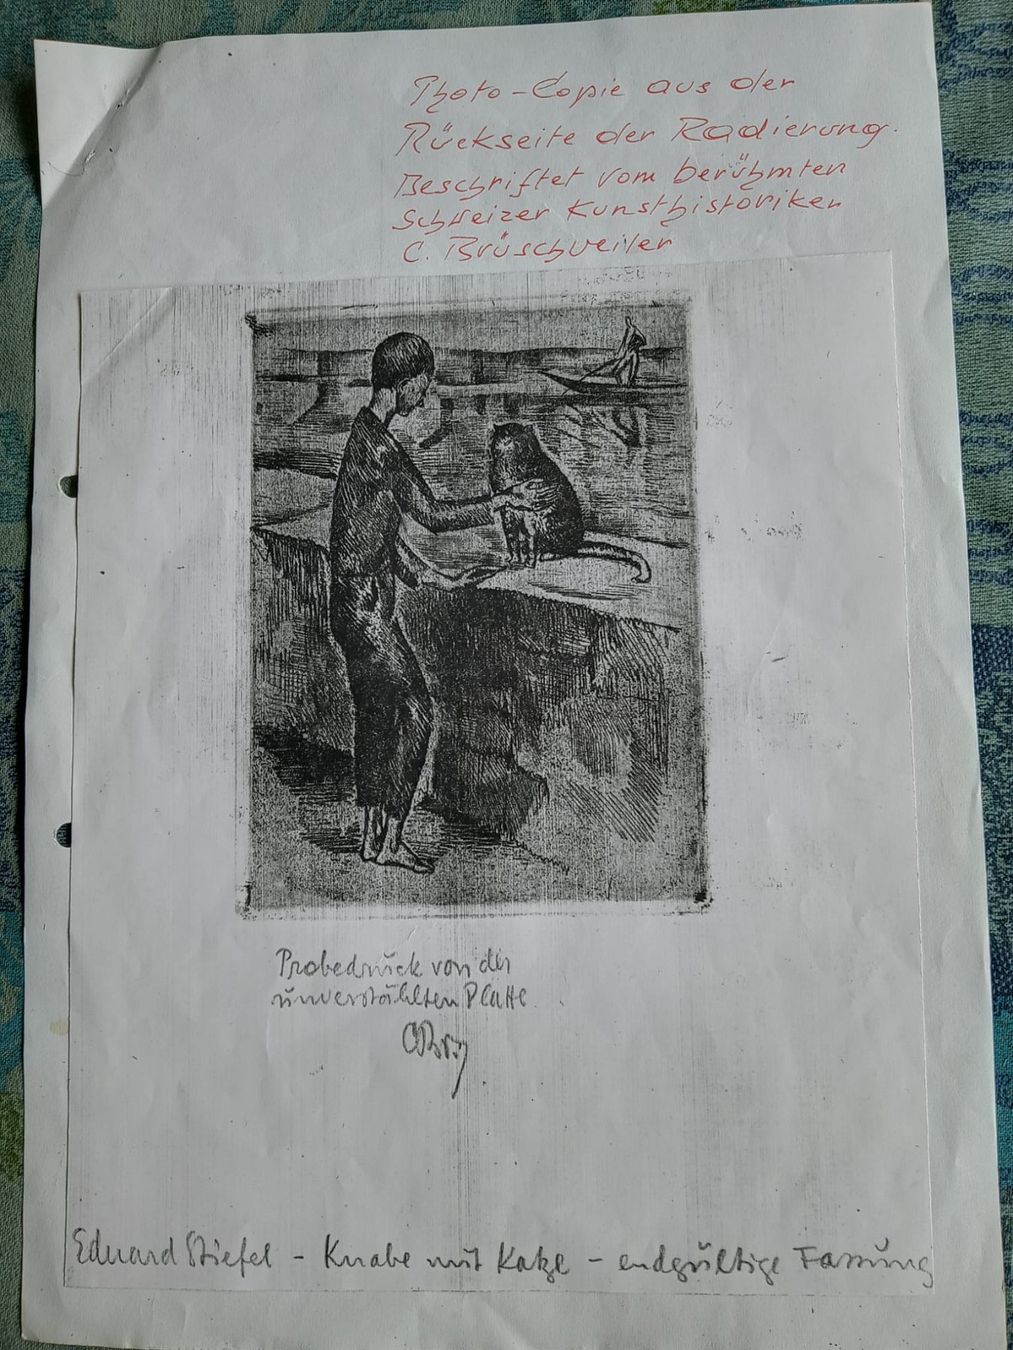 Photo-Copie aus der
Rückseite der Radierung.
Beschriftet vom berühmten
Schweizer Kunsthistoriker
C. Brüschweiler
Probedruck von der
unverstählten Platte
Eduard Stiefel - Knabe mit Katze - endgültige Fassung